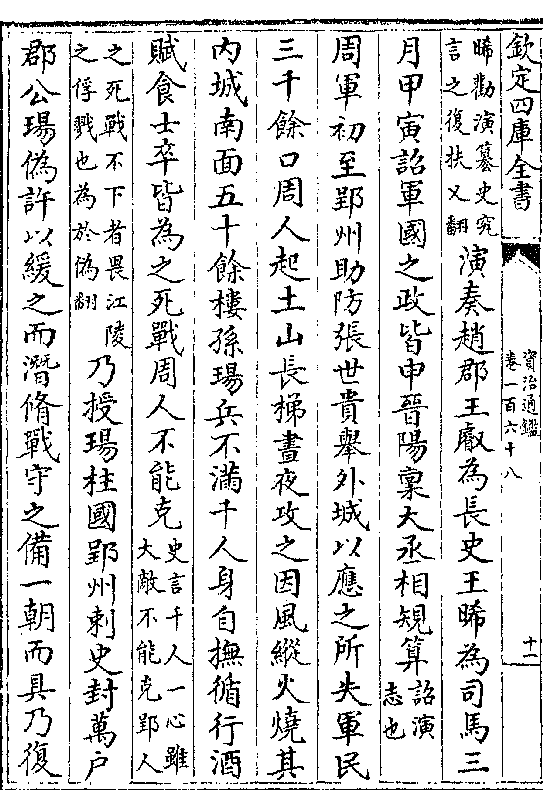 欽定四庫全書
資治通鑑
卷一百六十八
十一
晞勸演簒史究
言之復扶又翻
演奏趙郡王叡為長史王晞為司馬三
月甲寅詔軍國之政皆申晉陽稟大丞相規算
詔演
志也
周軍初至郢州助防張世貴舉外城以應之所失軍民
三千餘口周人起土山長梯晝夜攻之因風縱火燒其
内城南面五十餘樓孫瑒兵不滿千人身自撫循行酒
賦食士卒皆為之死戰周人不能克
史言千人一心雖
大敵不能克郢人
之死戰不下者畏江陵
之俘戮也為於偽翻
乃授瑒柱國郢州刺史封萬戶
郡公瑒偽許以緩之而潛脩戰守之備一朝而具乃復